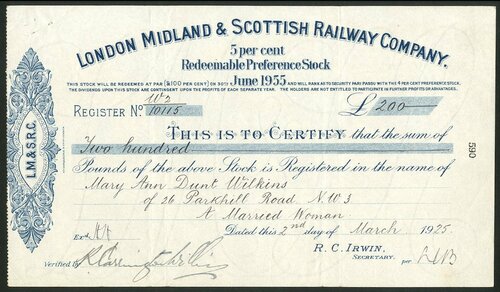 LONDON MIDLAND & SCOTTISH RAILWAY COMPANY.
5 per cent
Redeemable Preference Stock
June 1955
THIS STOCK WILL BE REDEEMED AT PAR (£100 PER CENT) ON 30TH AND WILL RANK AS TO SECURITY PARI PASSU WITH THE 4 PER CENT PREFERENCE STOCK.
THE DIVIDENDS UPON THIS STOCK ARE CONTINGENT UPON THE PROFITS OF EACH SEPARATE YEAR. THE HOLDERS ARE NOT ENTITLED TO PARTICIPATE IN FURTHER PROFITS OR ADVANTAGES.
REGISTER No 10115
£ 200
THIS IS TO CERTIFY that the sum of
Two hundred
Pounds of the above Stock is Registered in the name of
Mary Ann Dunt Wilkins
of 26 Parkhill Road N.W.3
A Married Woman
Exd.
Dated this 2nd day of March 1925.
R. C. IRWIN,
SECRETARY. per
Verified by
L.M.& S.R.C.
590